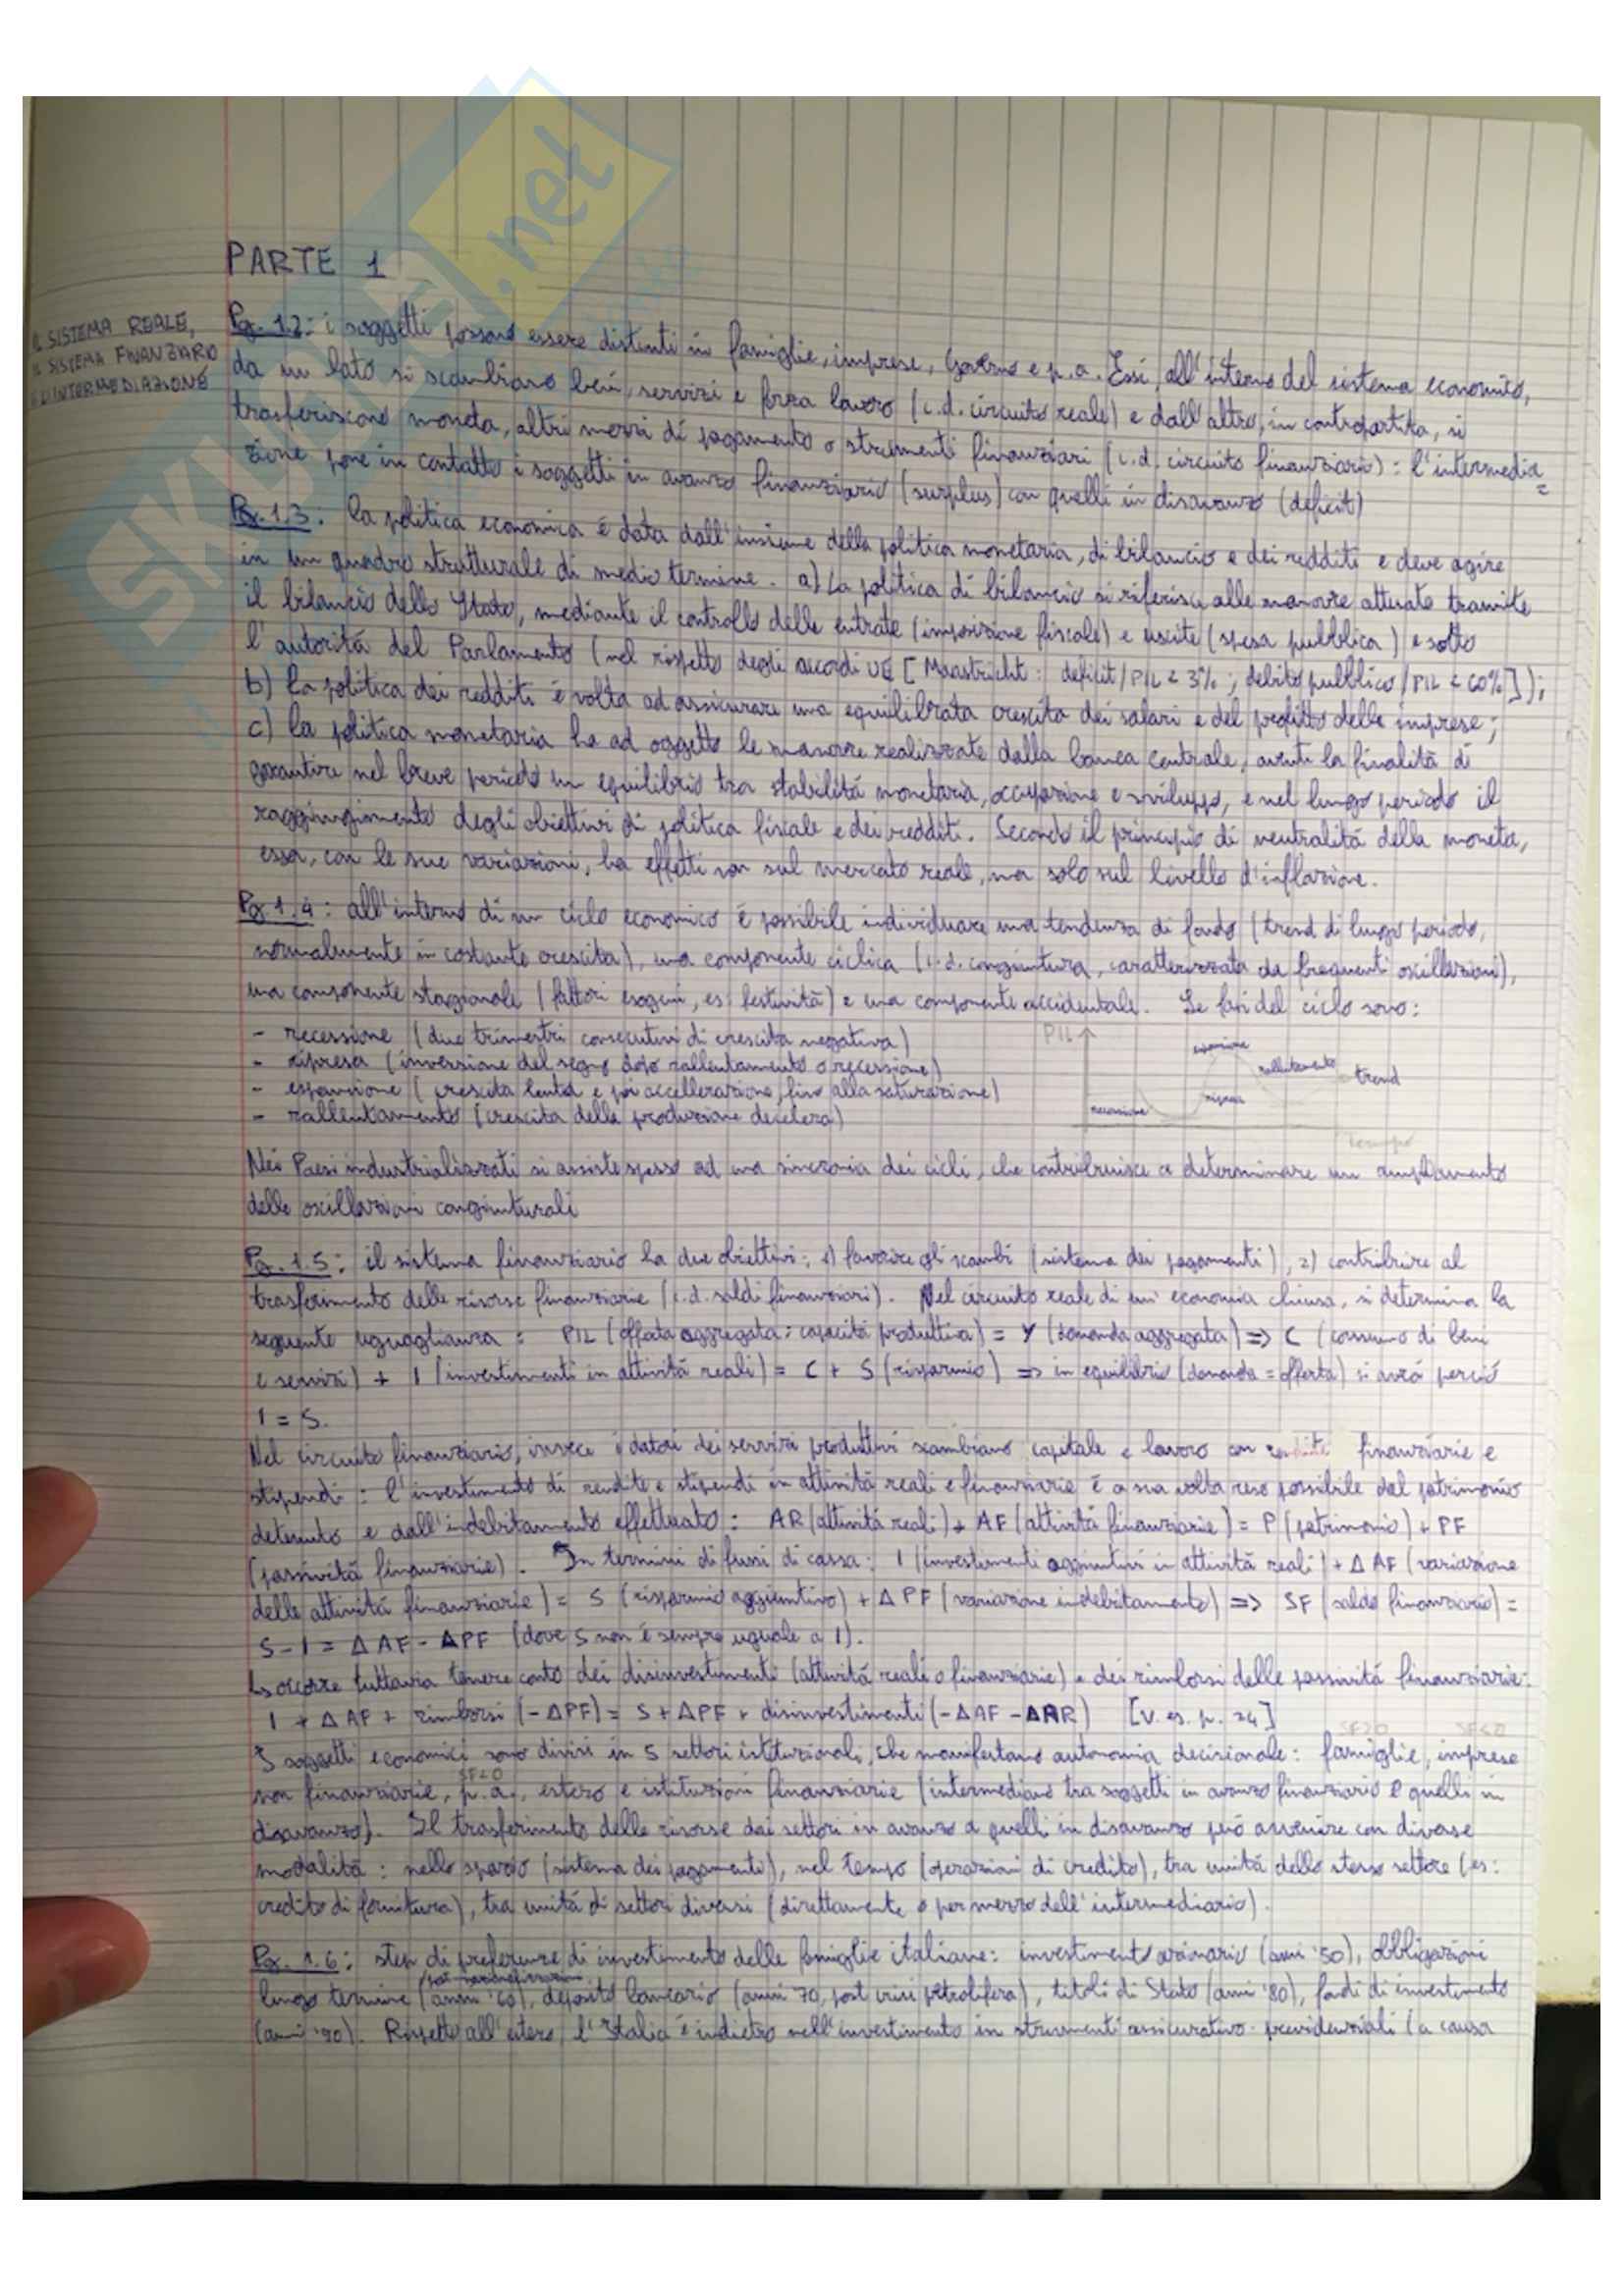 PARTE 1
IL SISTEMA REALE,
IL SISTEMA FINANZIARIO
E L'INTERMEDIAZIONE
Pg. 1.2: i soggetti possono essere distinti in famiglie, imprese, Governo e p.a. Essi, all'interno del sistema economico,
da un lato si scambiano beni, servizi e forza lavoro (c.d. circuito reale) e dall'altro, in contropartita, si
trasferiscono moneta, altri mezzi di pagamento o strumenti finanziari (c.d. circuito finanziario): l'intermedia=
zione pone in contatto i soggetti in avanzo finanziario (surplus) con quelli in disavanzo (deficit)
Pg. 1.3: la politica economica è data dall'insieme della politica monetaria, di bilancio e dei redditi e deve agire
in un quadro strutturale di medio termine. a) La politica di bilancio si riferisce alle manovre attuate tramite
il bilancio dello Stato, mediante il controllo delle entrate (imposizione fiscale) e uscite (spesa pubblica) e sotto
l'autorità del Parlamento (nel rispetto degli accordi UE [Maastricht: deficit/PIL < 3%; debito pubblico/PIL < 60%]);
b) la politica dei redditi è volta ad assicurare una equilibrata crescita dei salari e del profitto delle imprese;
c) la politica monetaria ha ad oggetto le manovre realizzate dalla banca centrale, aventi la finalità di
garantire nel breve periodo un equilibrio tra stabilità monetaria, occupazione e sviluppo, e nel lungo periodo il
raggiungimento degli obiettivi di politica fiscale e dei redditi. Secondo il principio di neutralità della moneta,
essa, con le sue variazioni, ha effetti non sul mercato reale, ma solo sul livello d'inflazione.
Pg 1.4: all'interno di un ciclo economico è possibile individuare una tendenza di fondo (trend di lungo periodo,
normalmente in costante crescita), una componente ciclica (c.d. congiuntura, caratterizzata da frequenti oscillazioni),
una componente stagionale (fattori esogeni, es: festività) e una componente accidentale. Le fasi del ciclo sono:
- recessione (due trimestri consecutivi di crescita negativa)
- ripresa (inversione del segno dopo rallentamento o recessione)
- espansione (crescita lenta e poi accellerazione, fino alla saturazione)
- rallentamento (crescita della produzione decelera)
PIL
espansione
rallentamento
trend
recessione
ripresa
tempo
Nei Paesi industrializzati si assiste spesso ad una sincronia dei cicli, che contribuisce a determinare un ampliamento
delle oscillazioni congiunturali
Pg. 1.5: il sistema finanziario ha due obiettivi: 1) favorire gli scambi (sistema dei pagamenti), 2) contribuire al
trasferimento delle risorse finanziarie (c.d. saldi finanziari). Nel circuito reale di un'economia chiusa, si determina la
seguente uguaglianza: PIL (offerta aggregata: capacità produttiva) = Y (domanda aggregata) => C (consumo di beni
e servizi) + I (investimenti in attività reali) = C + S (risparmio) => in equilibrio (domanda = offerta) si avrà perciò
I = S.
Nel circuito finanziario, invece i datori dei servizi produttivi scambiano capitale e lavoro con rendite finanziarie e
stipendi: l'investimento di rendite e stipendi in attività reali e finanziarie è a sua volta reso possibile dal patrimonio
detenuto e dall'indebitamento effettuato: AR (attività reali) + AF (attività finanziarie) = P (patrimonio) + PF
(passività finanziarie). In termini di flussi di cassa: I (investimenti aggiuntivi in attività reali) + Δ AF (variazione
delle attività finanziarie) = S (risparmio aggiuntivo) + Δ PF (variazione indebitamento) => SF (saldo finanziario) =
S - I = Δ AF - Δ PF (dove S non è sempre uguale a I).
↳ occorre tuttavia tenere conto dei disinvestimenti (attività reali o finanziarie) e dei rimborsi delle passività finanziarie:
I + Δ AF + rimborsi (-ΔPF) = S + ΔPF + disinvestimenti (-ΔAF - ΔAR) [V. es. p. 24]
SF>0 SF<0
I soggetti economici sono divisi in 5 settori istituzionali, che manifestano autonomia decisionale: famiglie, imprese
SF<0
non finanziarie, p.a., estero e istituzioni finanziarie (intermediano tra soggetti in avanzo finanziario e quelli in
disavanzo). Il trasferimento delle risorse dai settori in avanzo a quelli in disavanzo può avvenire con diverse
modalità: nello spazio (sistema dei pagamenti), nel tempo (operazioni di credito), tra unità dello stesso settore (es:
credito di fornitura), tra unità di settori diversi (direttamente o per mezzo dell'intermediario).
Pg. 1.6: step di preferenze di investimento delle famiglie italiane: investimento azionario (anni '50), obbligazioni
lungo termine (anni '60), deposito bancario (anni 70, post crisi petrolifera), titoli di Stato (anni '80), fondi di investimento
(anni '90). Rispetto all'estero, l'Italia è indietro nell'investimento in strumenti assicurativo-previdenziali (a causa